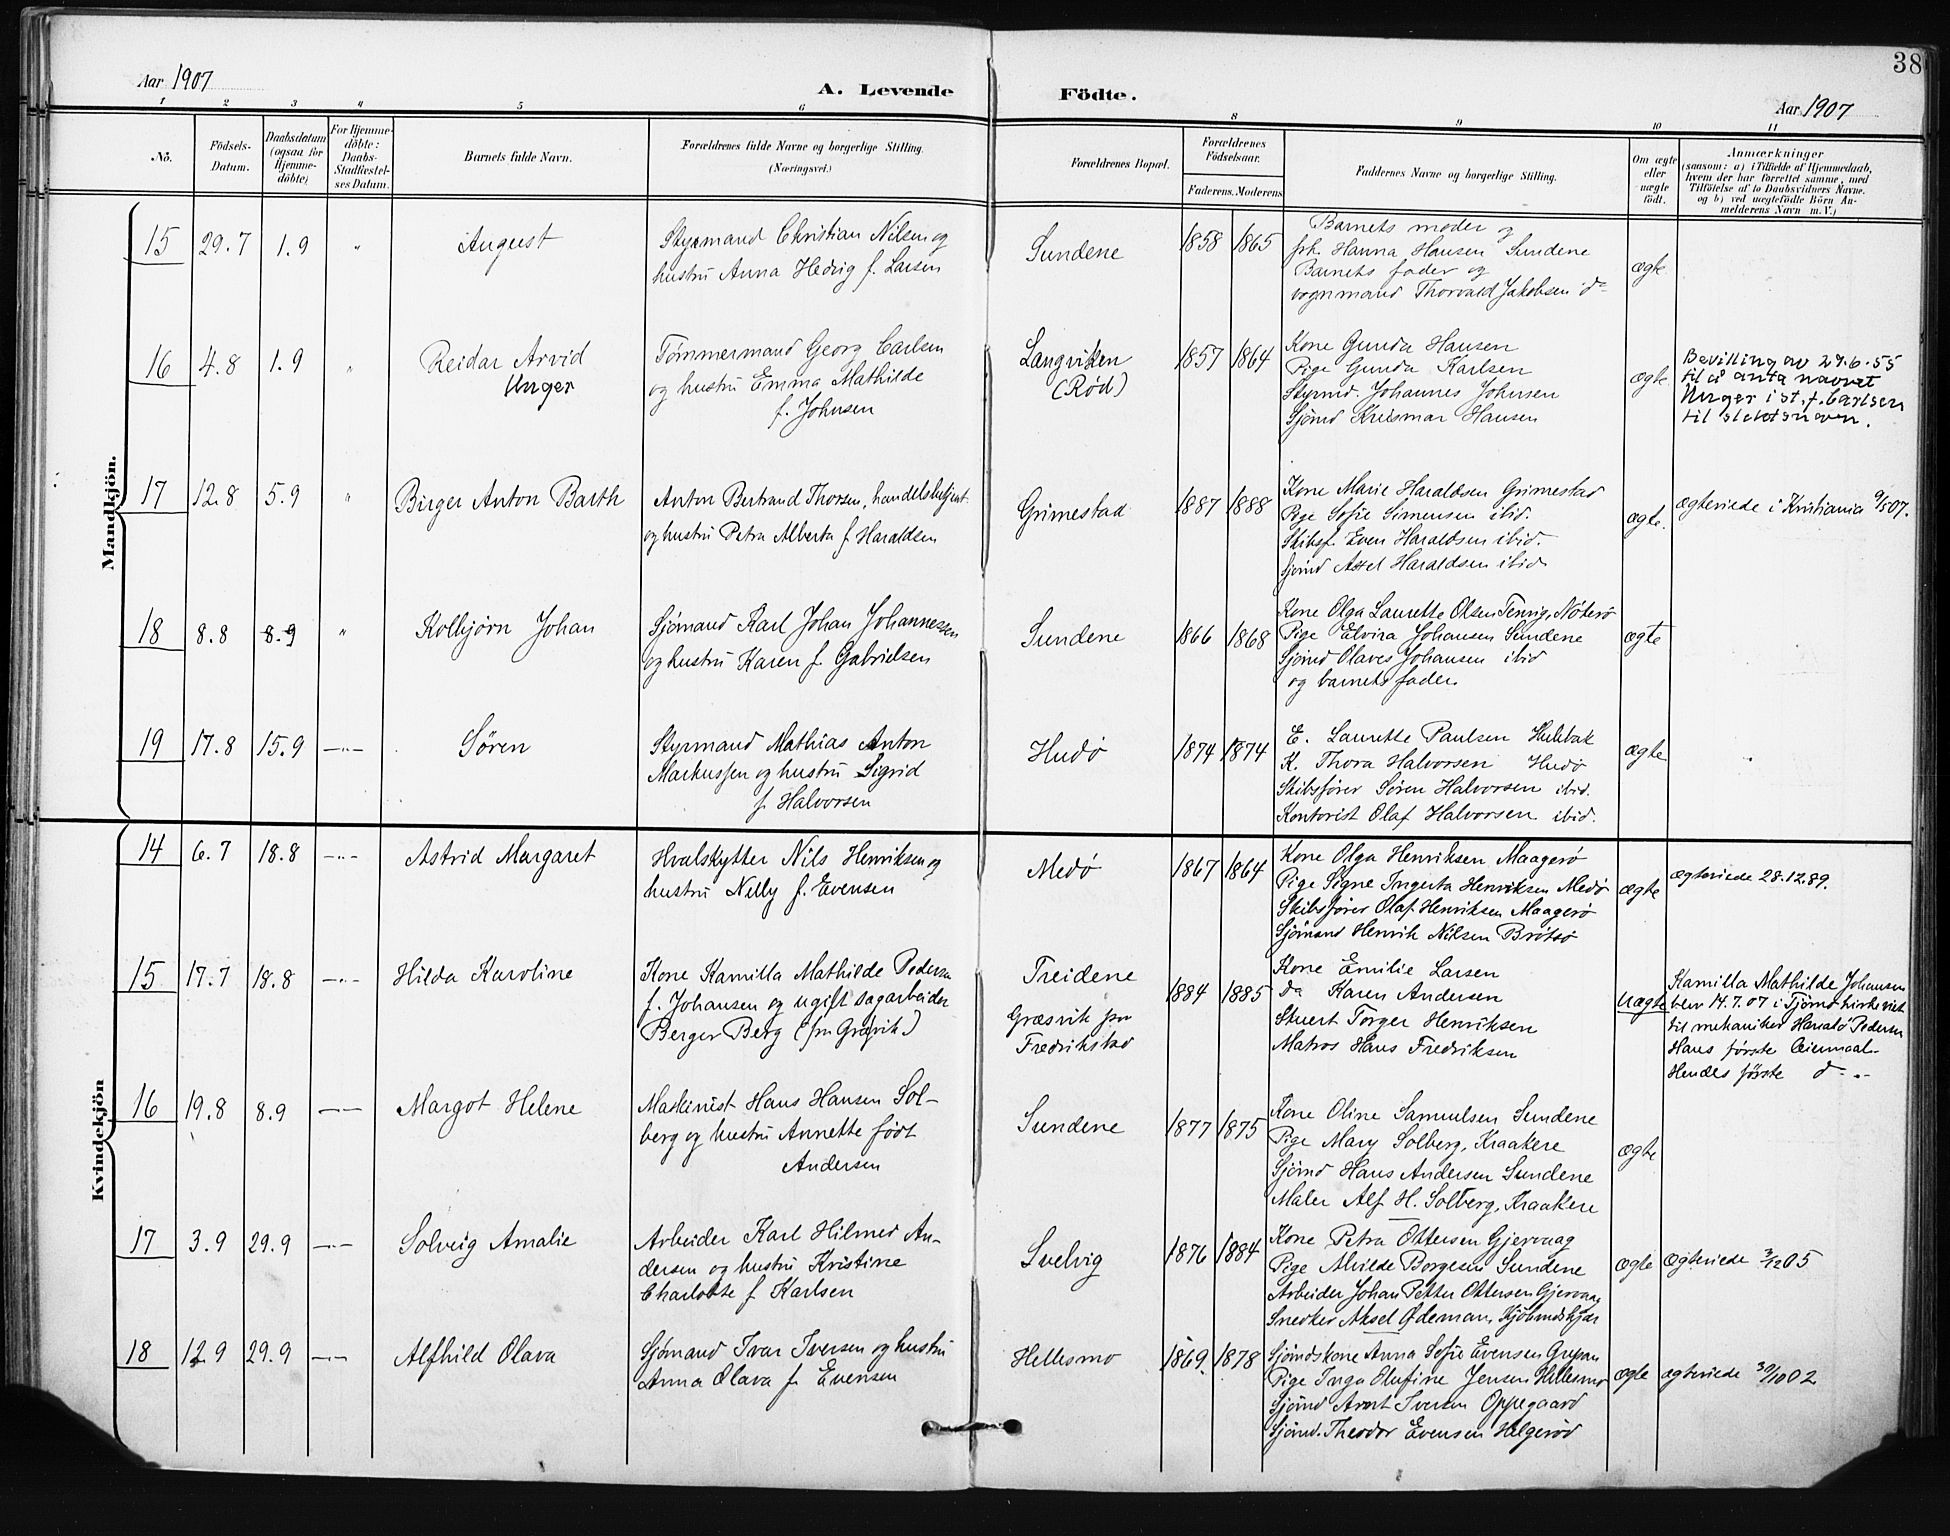 38
Aar 1907
A. Levende Födte.
Aar 1907
1 2 3 4 5 6 8 9 10 11
No.
Födsels-
Datum.
Daabsdatum
(ogsaa for
Hjemme-
döbte)
For Hjemme-
döbte:
Daabs-
Stadfæstel-
ses Datum.
Barnets fulde Navn.
Forældrenes fulde Navne og borgerlige Stilling.
(Næringsvei.)
Forældrenes Bopæl.
Forældrenes
Födselsaar.
Faderens. Moderens
Faddernes Navne og borgerlige Stilling.
Om ægte
eller
uægte
födt.
Anmærkninger
(saasom: a) i Tilfælde af Hjemmedaab,
hvem der har forrettet samme, med
Tilföielse af to Daabsvidners Navne.
og b) ved uægtefödte Börn An-
melderens Navn m. V.)
Mandkjön.
15 29.7 1.9 "
August
Styrmand Christian Nilsen og
hustru Anna Hedvig f. Larsen
Sundene
1858 1865
Barnets moder og
frk. Hanna Hansen Sundene
Barnets fader og
vognmand Thorvald Jakobsen do
ægte
16 4.8 1.9 "
Reidar Arvid
Unger
Tømmermand Georg Carlsen
og hustru Emma Mathilde
f. Johnsen
Langviken
(Rød)
1857 1864
Kone Gunda Hansen
Pige Gunda Karlsen
Styrmd. Johannes Johnsen
Sjømd Hansen
ægte
Bevilling av 27.6.55
til å anta navnet
Unger i st. f. Carlsen
til slektsnavn.
17 12.8 5.9 "
Birger Anton Barth
Anton Bertrand Thorsen, handelsbetjent
og hustru Petra Alberta f Haraldsen
Grimestad
1887 1888
Kone Marie Haraldsen Grimestad
Pige Sofie Simensen ibid.
Skibsf. Even Haraldsen ibid.
Sjømd Axel Haraldsen ibid.
ægte.
ægteviede i Kristiania 9/5 07.
18 8.8 8.9 "
Kolbjørn Johan
Sjømand Karl Johan Johannessen
og hustru Karen f. Gabrielsen
Sundene
1866 1868
Kone Olga Laurette Olsen Tenvig, Nøterø
Pige Elvira Johansen Sundene
Sjømd Olaves Johansen ibid
og barnets fader.
ægte
19 17.8 15.9 —"—
Søren
Styrmand Mathias Anton
Markussen og hustru Sigrid
f. Halvorsen
Hudø
1874 1874
E. Laurette Paulsen Hulebak
K. Thora Halvorsen Hudø
Skibsfører Søren Halvorsen ibid.
Kontorist Olaf Halvorsen ibid.
ægte
Kvindekjön
14 6.7 18.8 —"—
Astrid Margaret
Hvalskytter Nils Henriksen og
hustru Nelly f. Evensen
Medø
1867 1864
Kone Olga Henriksen Maagerø
Pige Signe Ingerta Henriksen Medø
Skibsfører Olaf Henriksen Maagerø
Sjømand Henrik Nilsen Brøtsø
ægte
ægteviede 28.12.89.
15 17.7 18.8 —"—
Hilda Karoline
Kone Kamilla Mathilde Pedersen
f. Johansen og ugift sagarbeider
Berger Berg
Treidene
Græsvik pr
Fredrikstad
1884 1885
Kone Emilie Larsen
do Karen Andersen
Stuert Torger Henriksen
Matros Hans Fredriksen
Uægte
Kamilla Mathilde Johansen
blev 14.7.07 i Tjømø kirke viet
til mekaniker Harald Pedersen
Hans første Leiermaal.
Hendes første d—"—
16 19.8 8.9 —"—
Margot Helene
Maskinist Hans Hansen Sol-
berg og hustru Annette født
Andersen
Sundene
1877 1875
Kone Oline Samuelsen Sundene
Pige Mary Solberg, Kraakere
Sjømd Hans Andersen Sundene
Maler Alf H. Solberg, Kraakere
ægte
17 3.9 29.9 —"—
Solveig Amalie
Arbeider Karl Hilmer An-
dersen og hustru Kristine
Charlotte f Karlsen
Svelvig
1876 1884
Kone Petra Ottersen Gjervaag
Pige Alvilde Borgesen Sundene
Arbeider Johan Petter Ottersen Gjervaag
Snedker Aksel Ødeman,
ægte
ægteviede 3/12 05
18 12.9 29.9 —"—
Alfhild Olava
Sjømand Ivar Iversen og hustru
Anna Olava f. Evensen
Hellesmo
1869. 1878
Sjømdskone Anna Sofie Evensen Grepan
Pige Inga Olufine Jensen Hellesmo
Sjømd Arnt Iversen Oppegaard
Sjømd. Theodor Evensen Helgerød
ægte
ægteviede 30/10 02